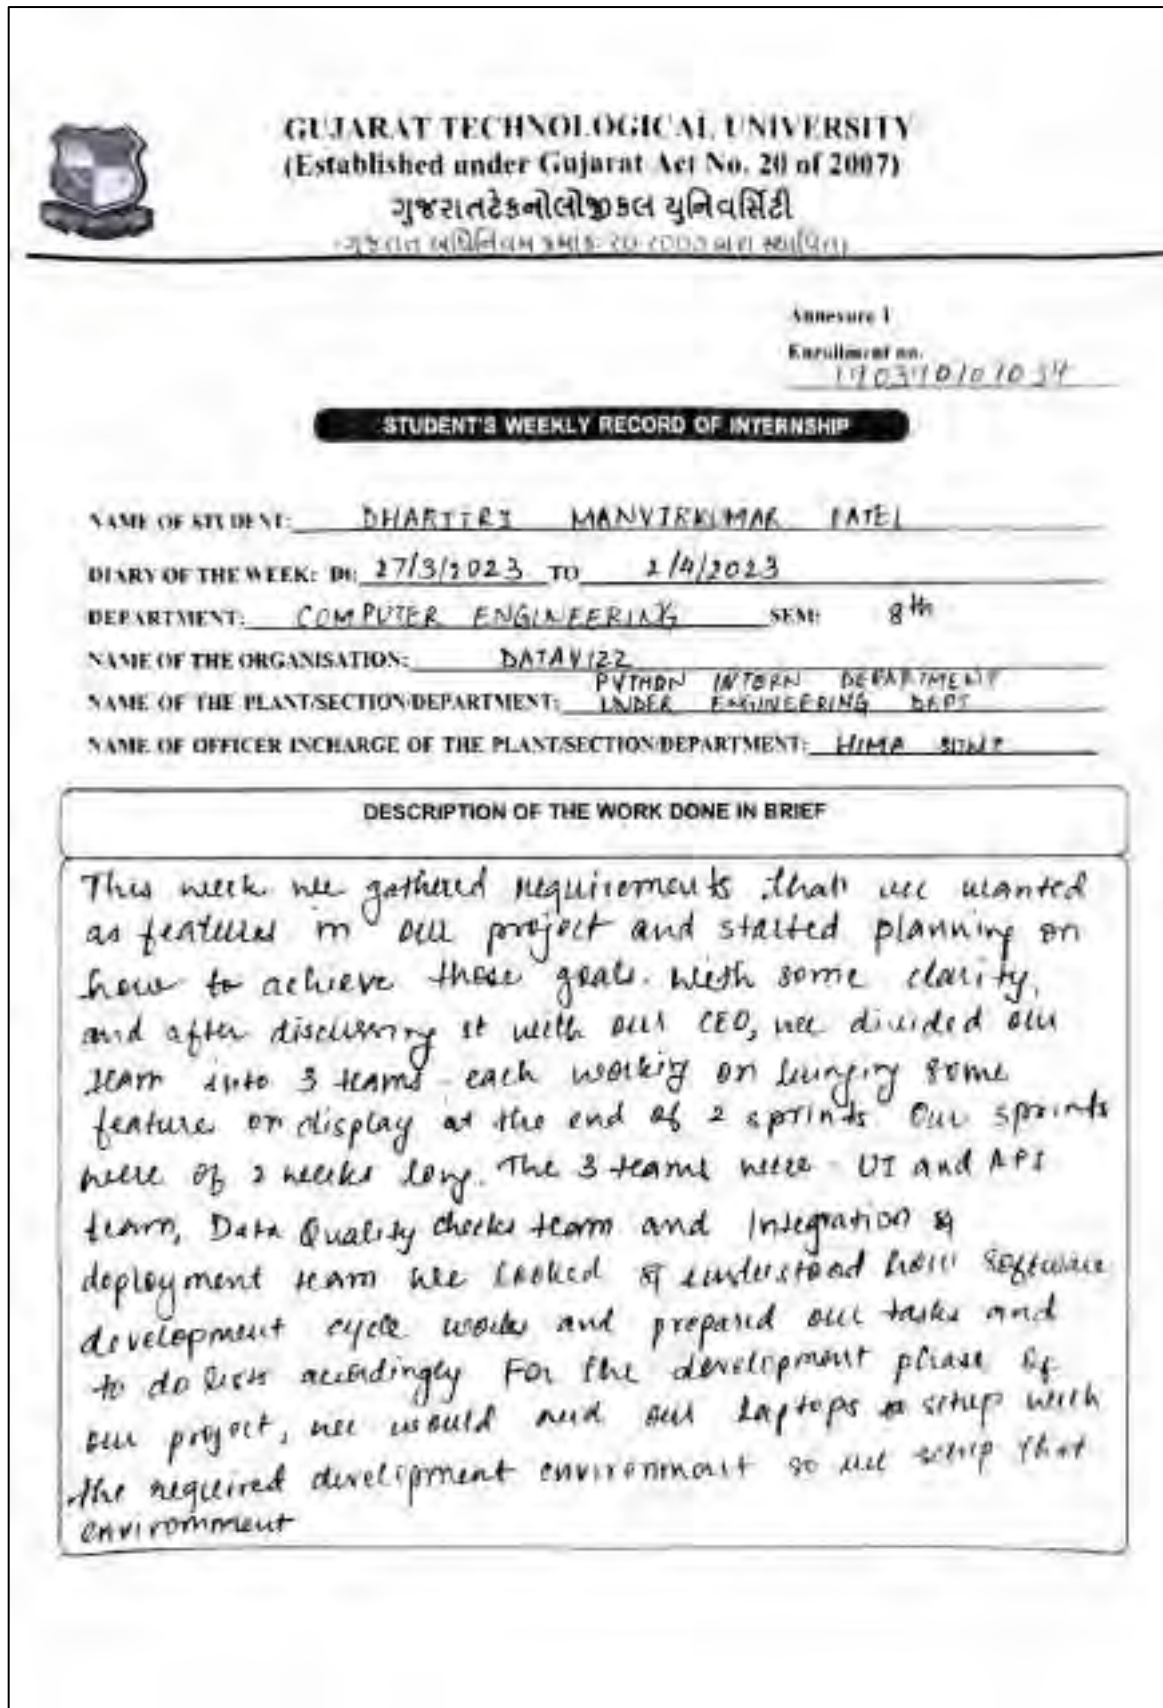 GUJARAT TECHNOLOGICAL UNIVERSITY
(Established under Gujarat Act No. 20 of 2007)
ગુજરાતટેકનોલોજીકલ યુનિવર્સિટી
Annexure 1
Enrollment no.
STUDENT'S WEEKLY RECORD OF INTERNSHIP
NAME OF STUDENT: MANVIRKUMAR PATEL
DIARY OF THE WEEK: Dt: 27/3/2023 TO 2/4/2023
DEPARTMENT: COMPUTER ENGINEERING SEM: 8th
NAME OF THE ORGANISATION: DATAVIZZ
PYTHON INTERN DEPARTMENT
NAME OF THE PLANT/SECTION/DEPARTMENT: UNDER ENGINEERING DEPT
NAME OF OFFICER INCHARGE OF THE PLANT/SECTION/DEPARTMENT: HIMA
DESCRIPTION OF THE WORK DONE IN BRIEF
This week we gathered requirements that we wanted
as features in our project and started planning on
how to achieve those goals. With some clarity,
and after discussing it with our CEO, we divided our
team into 3 teams - each working on bringing some
feature on display at the end of 2 sprints Our sprints
were of 2 weeks long. The 3 teams were - UI and API
team, Data Quality checks team and Integration &
deployment team We looked & understood how software
development cycle works and prepared our tasks and
to do lists accordingly For the development phase of
our project, we would need our laptops setup with
the required development environment so we setup that
environment